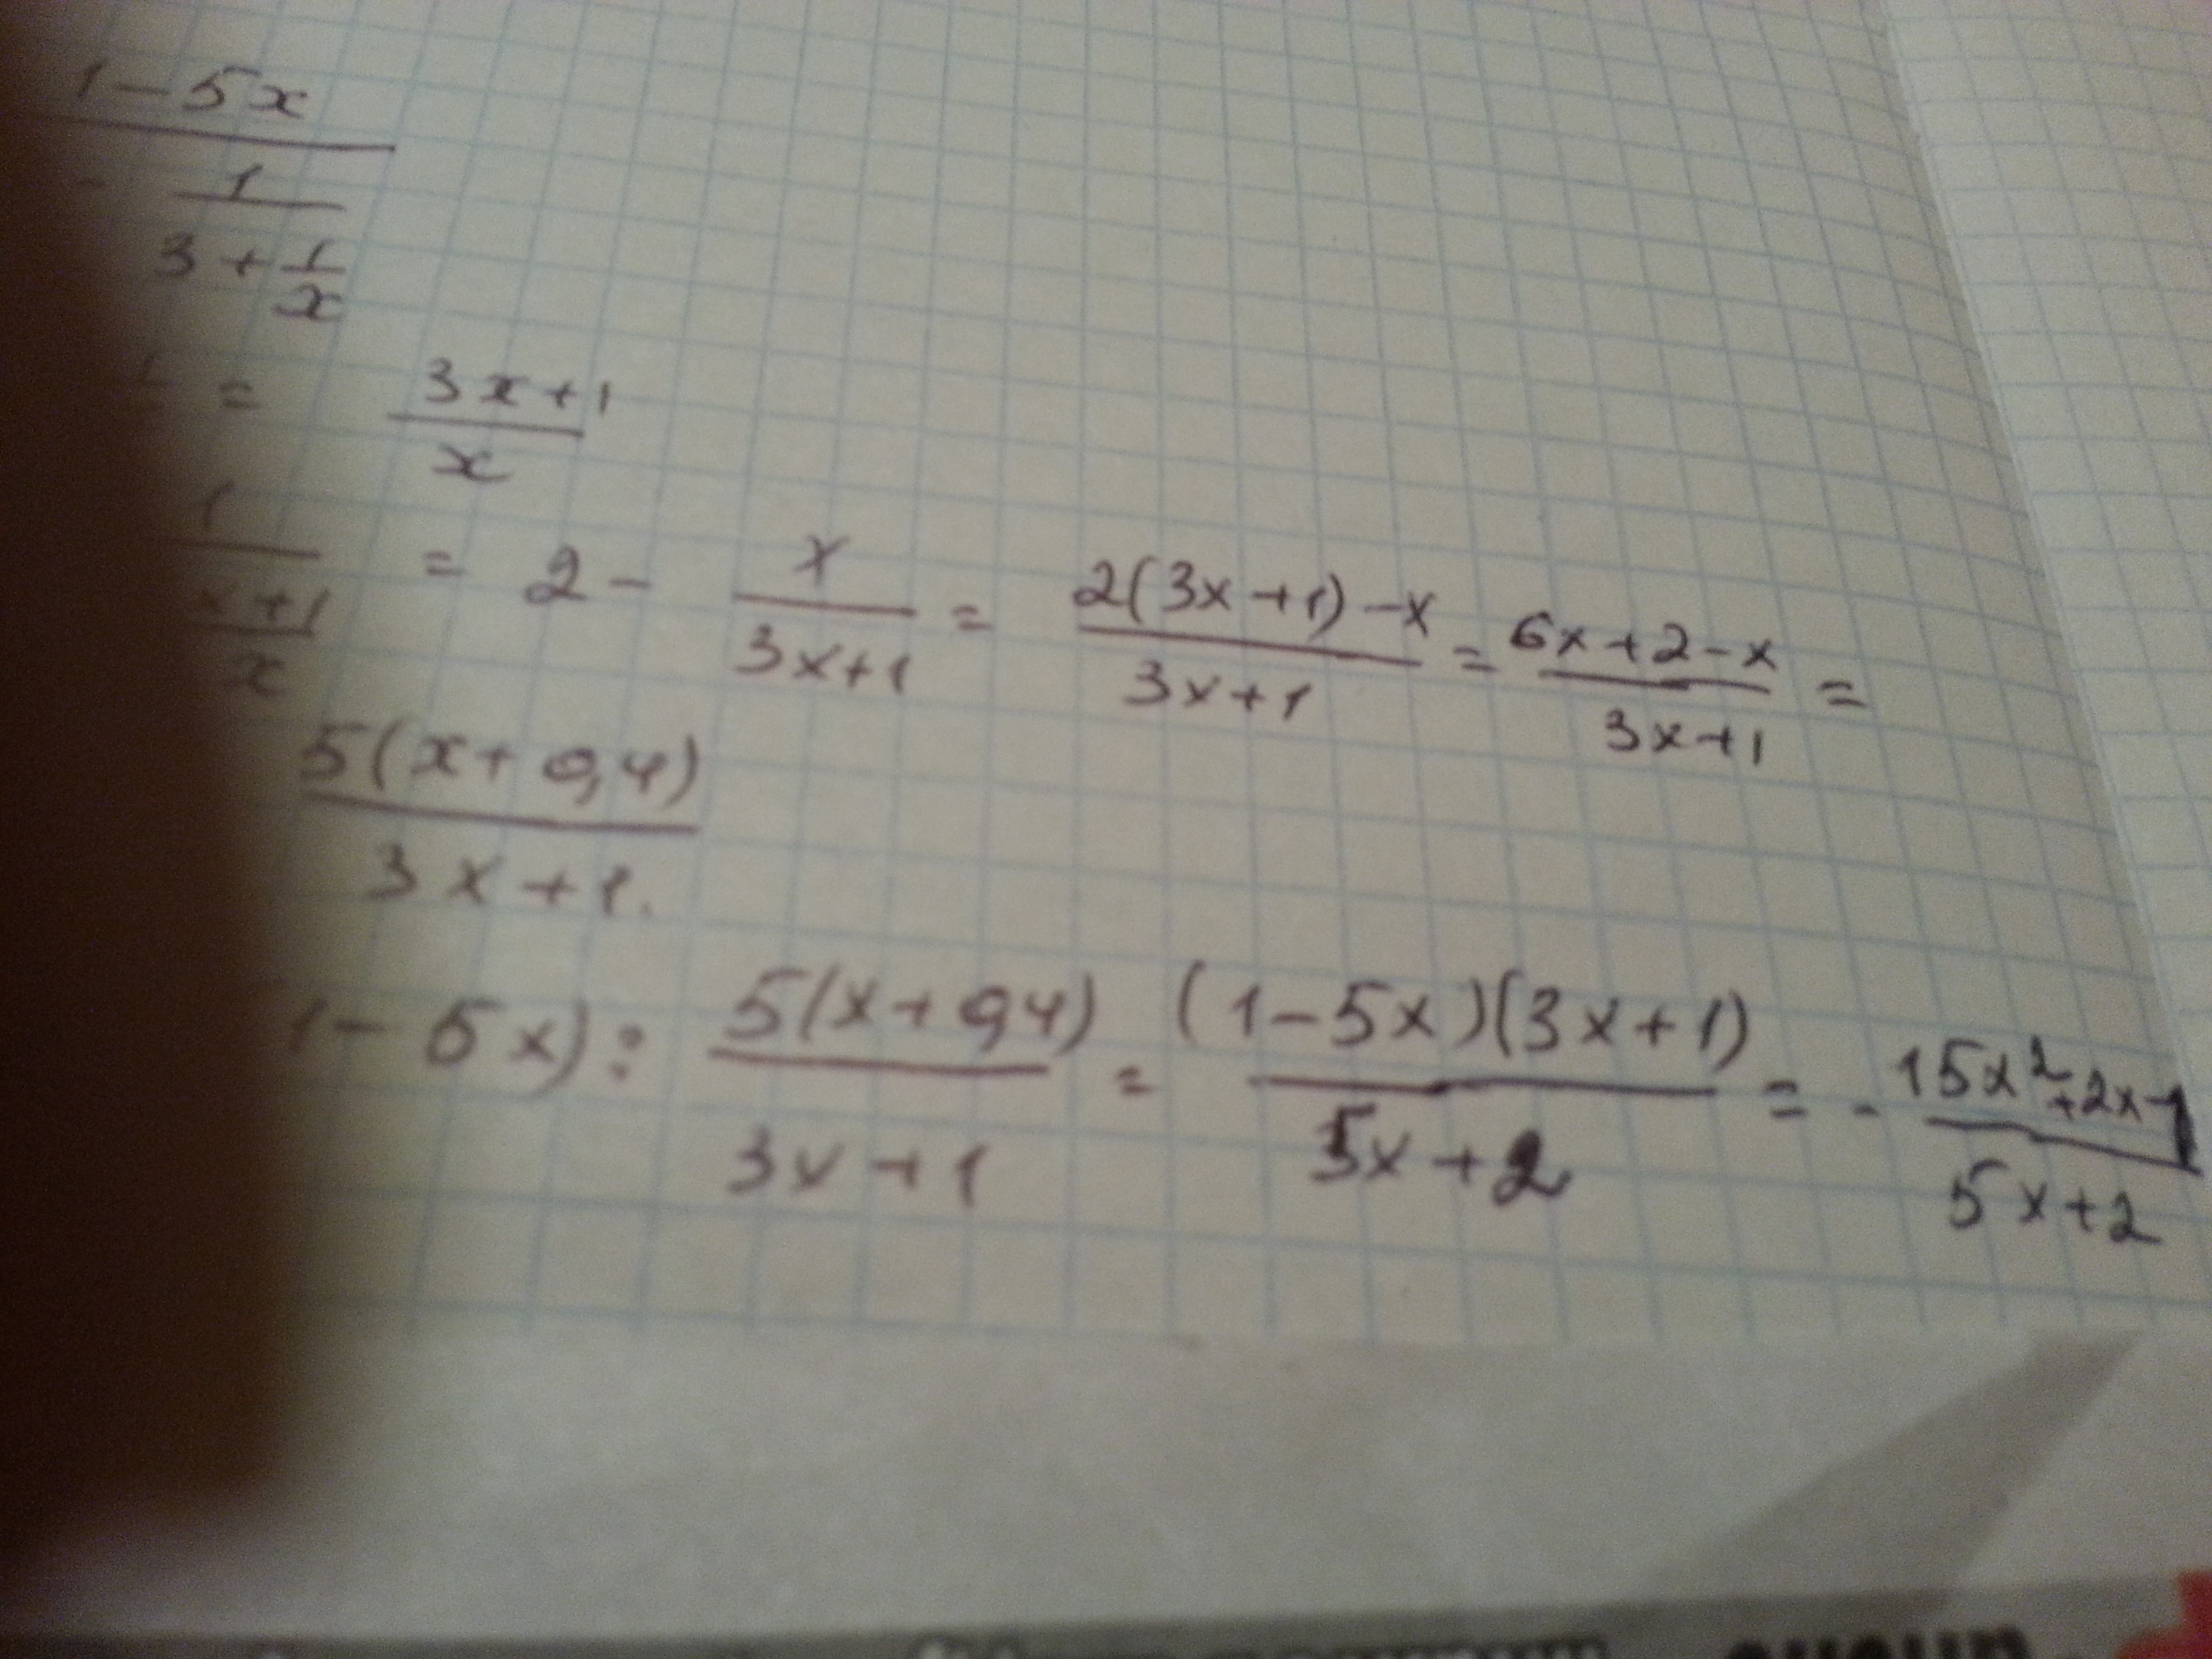 1 - 5x
- 1
3 + 1/x
= (3x + 1)/x
1/((x + 1)/x) = 2 - x/(3x+1) = (2(3x+1) - x)/(3x+1) = (6x+2-x)/(3x+1) =
5(x + 0,4)/(3x + 1).
1 - 5x) : 5(x + 0,4)/(3x + 1) = (1 - 5x)(3x + 1)/(5x + 2) = - (15x² + 2x - 1)/(5x + 2)